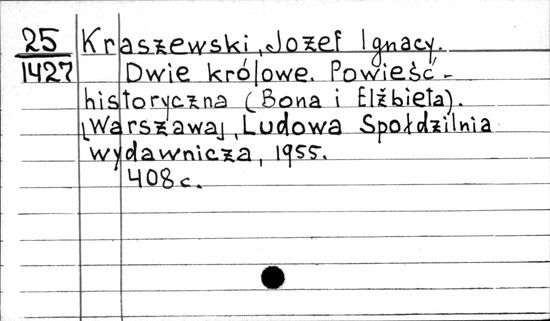 25 Kraszewski, Jozef Ignacy.
1427 Dwie królowe. Powieść-
historyczna (Bona i Elżbieta).
[Warszawa], Ludowa Społdzilnia
wydawnicza, 1955.
408 c.